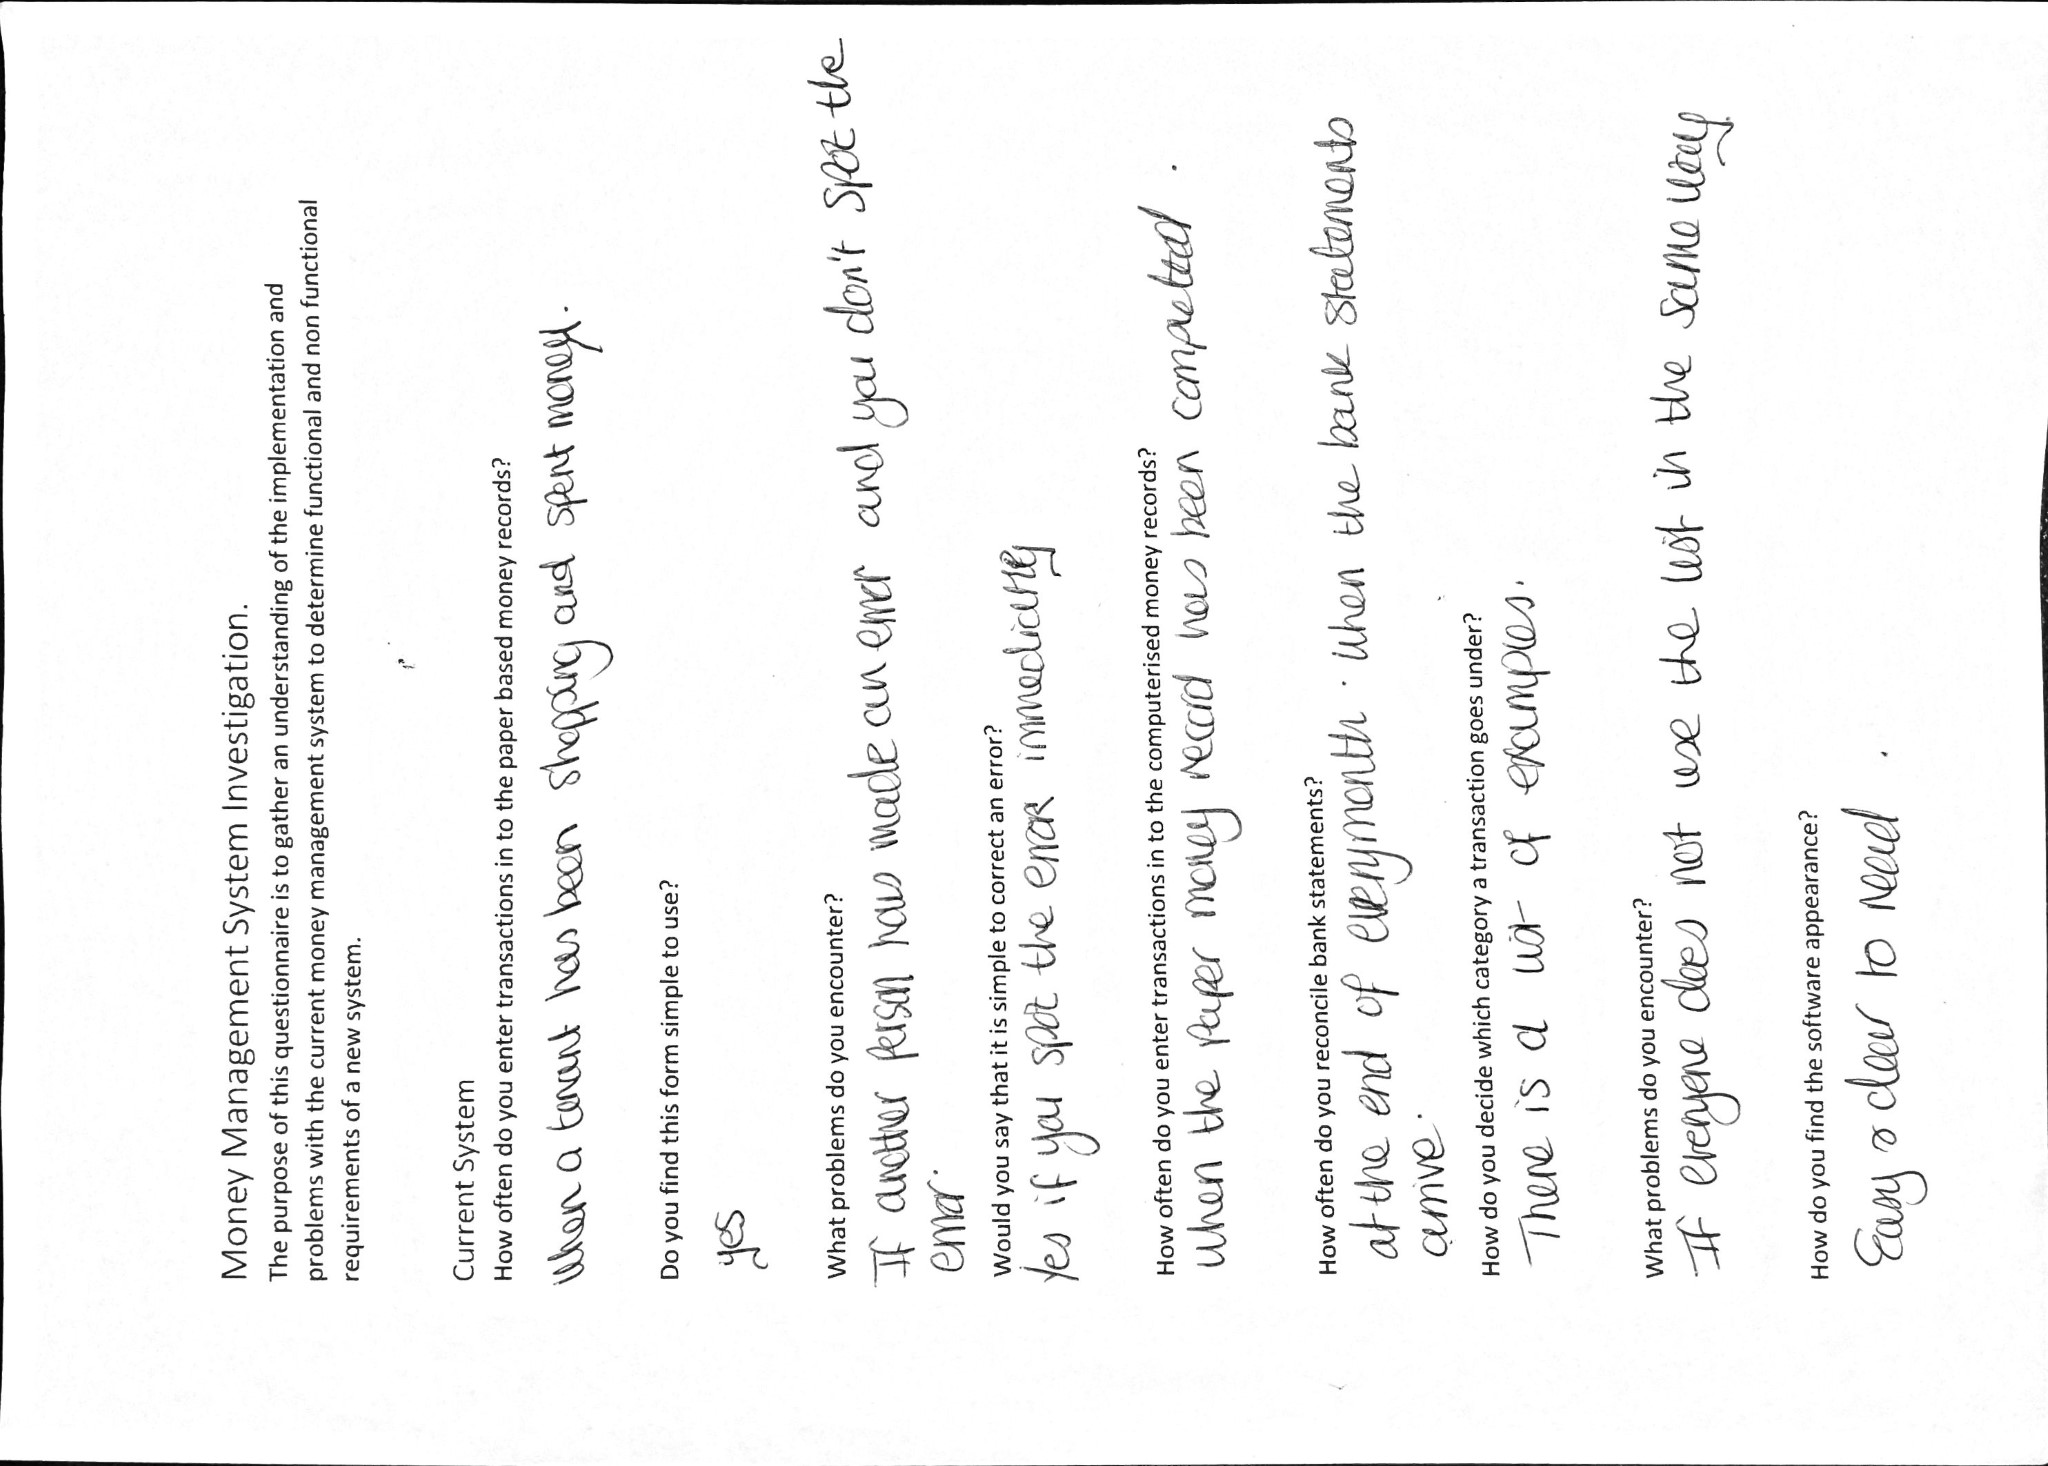 Money Management System Investigation.
The purpose of this questionnaire is to gather an understanding of the implementation and
problems with the current money management system to determine functional and non functional
requirements of a new system.
Current System
How often do you enter transactions in to the paper based money records?
When a tenant has been shopping and spent money.
Do you find this form simple to use?
yes
What problems do you encounter?
If another person has made an error and you don't spot the
error.
Would you say that it is simple to correct an error?
Yes if you spot the error immediatly
How often do you enter transactions in to the computerised money records?
When the paper money record has been completed.
How often do you reconcile bank statements?
at the end of every month. when the bank statements
arrive.
How do you decide which category a transaction goes under?
There is a list of examples.
What problems do you encounter?
If everyone does not use the list in the same way
How do you find the software appearance?
Easy & clear to read.